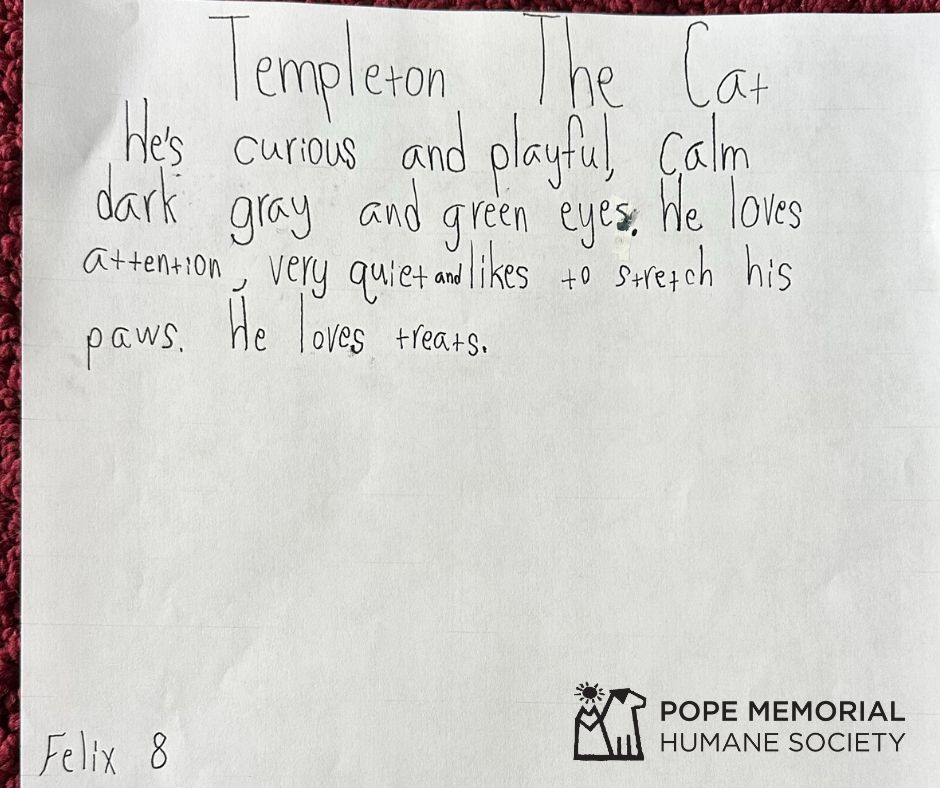 Templeton The Cat
He's curious and playful, calm
dark gray and green eyes. He loves
attention, very quiet and likes to stretch his
paws. He loves treats.
Felix 8
POPE MEMORIAL
HUMANE SOCIETY